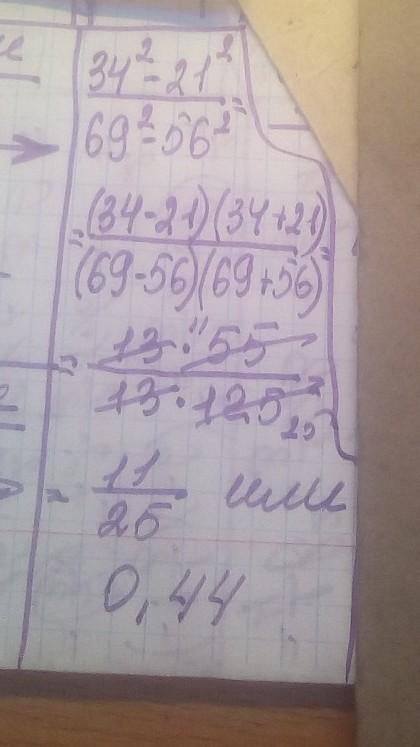 34² - 21²
69² - 56² =
= (34-21)(34+21)
(69-56)(69+56) =
= 13 · 55 11
13 · 125 25
= 11 или
25
0,44